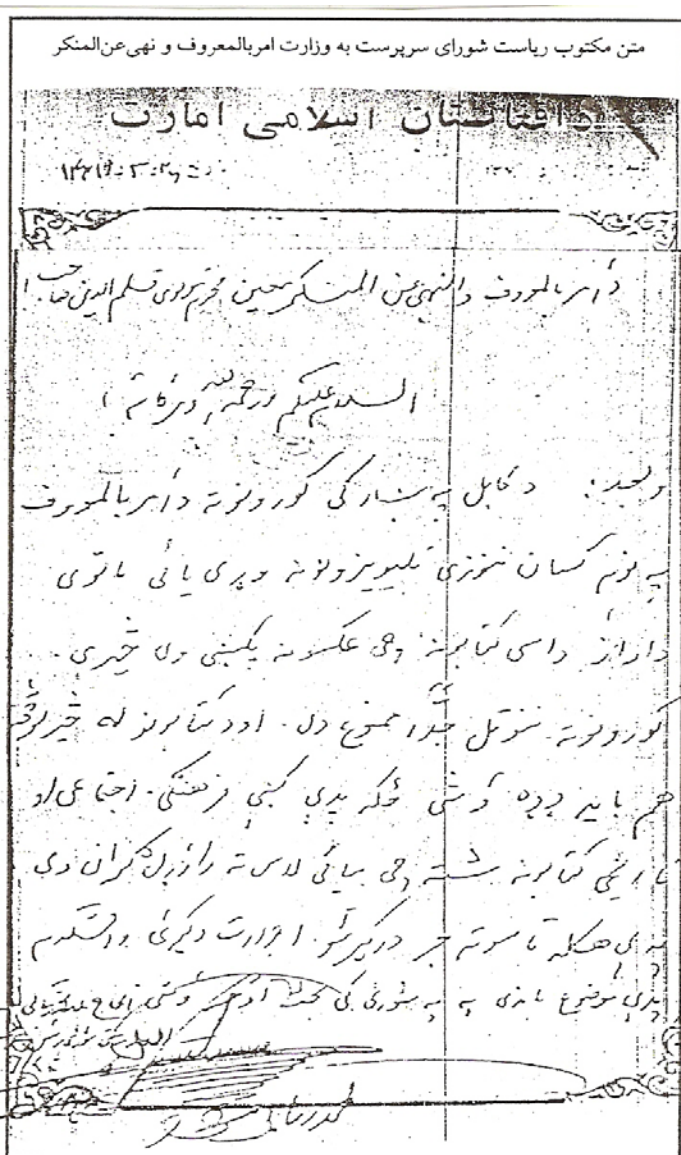 متن مکتوب ریاست شورای سرپرست به وزارت امربالمعروف و نهی‌عن‌المنکر
دافغانستان اسلامی امارت
دأمر بالمعروف والنهی عن المنکر معین محترم مولوی قلم الدین صاحب!
السلام علیکم ورحمة الله وبرکاته!
وبعد: د کابل په ښار کی کورونو ته دأمر بالمعروف
په نوم کسان ننوزی تلیویزونونه وړی یائی ماتوی
داراز داسی کتابونه چی عکسونه پکښی وی څیری.
کورونو ته ننوتل جداً ممنوع دی. اود کتابونو له څیرلو
هم باید ډډه وشی ځکه پدی کښی فرهنگی. اجتماعی او
تاریخی کتابونه شته چی بیائی لاس ته راوړل گران دی
پدی هکله تاسو ته خبر درکړ شو.
پدی موضوع باندی په شوری کی بحث